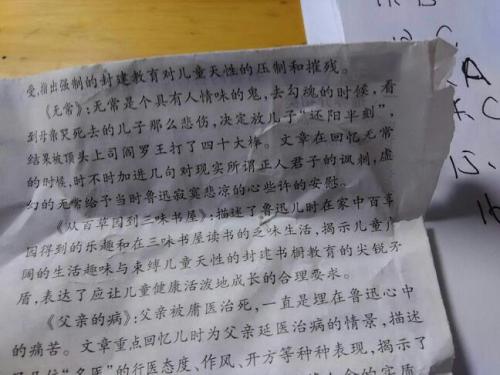 受,指出强制的封建教育对儿童天性的压制和摧残。
《无常》:无常是个具有人情味的鬼,去勾魂的时候,看
到母亲哭死去的儿子那么悲伤,决定放儿子“还阳半刻”,
结果被顶头上司阎罗王打了四十大棒。文章在回忆无常
的时候,时不时加进几句对现实所谓正人君子的讽刺,虚
幻的无常给予当时鲁迅寂寞悲凉的心些许的安慰。
《从百草园到三味书屋》:描述了鲁迅儿时在家中百草
园得到的乐趣和在三味书屋读书的乏味生活,揭示儿童广
阔的生活趣味与束缚儿童天性的封建书橱教育的尖锐矛
盾,表达了应让儿童健康活泼地成长的合理要求。
《父亲的病》:父亲被庸医治死,一直是埋在鲁迅心中
的痛苦。文章重点回忆儿时为父亲延医治病的情景,描述
“名医”的行医态度、作风、开方等种种表现,揭示了
的实质
A
C
15.
16